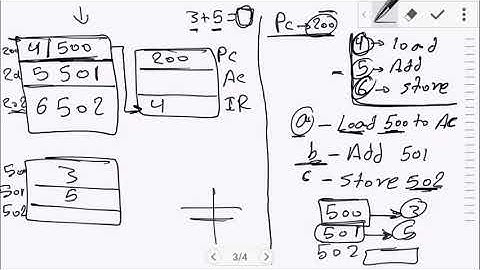 3+5=0
Pc → 200
200 4 500
20 5 501
202 6 502
200 Pc
Ac
4 IR
4 → load
5 → Add
6 → store
a - Load 500 to Ac
b - Add 501
c - store 502
50 3
501 5
502
500 → 3
501 → 5
502
3/4